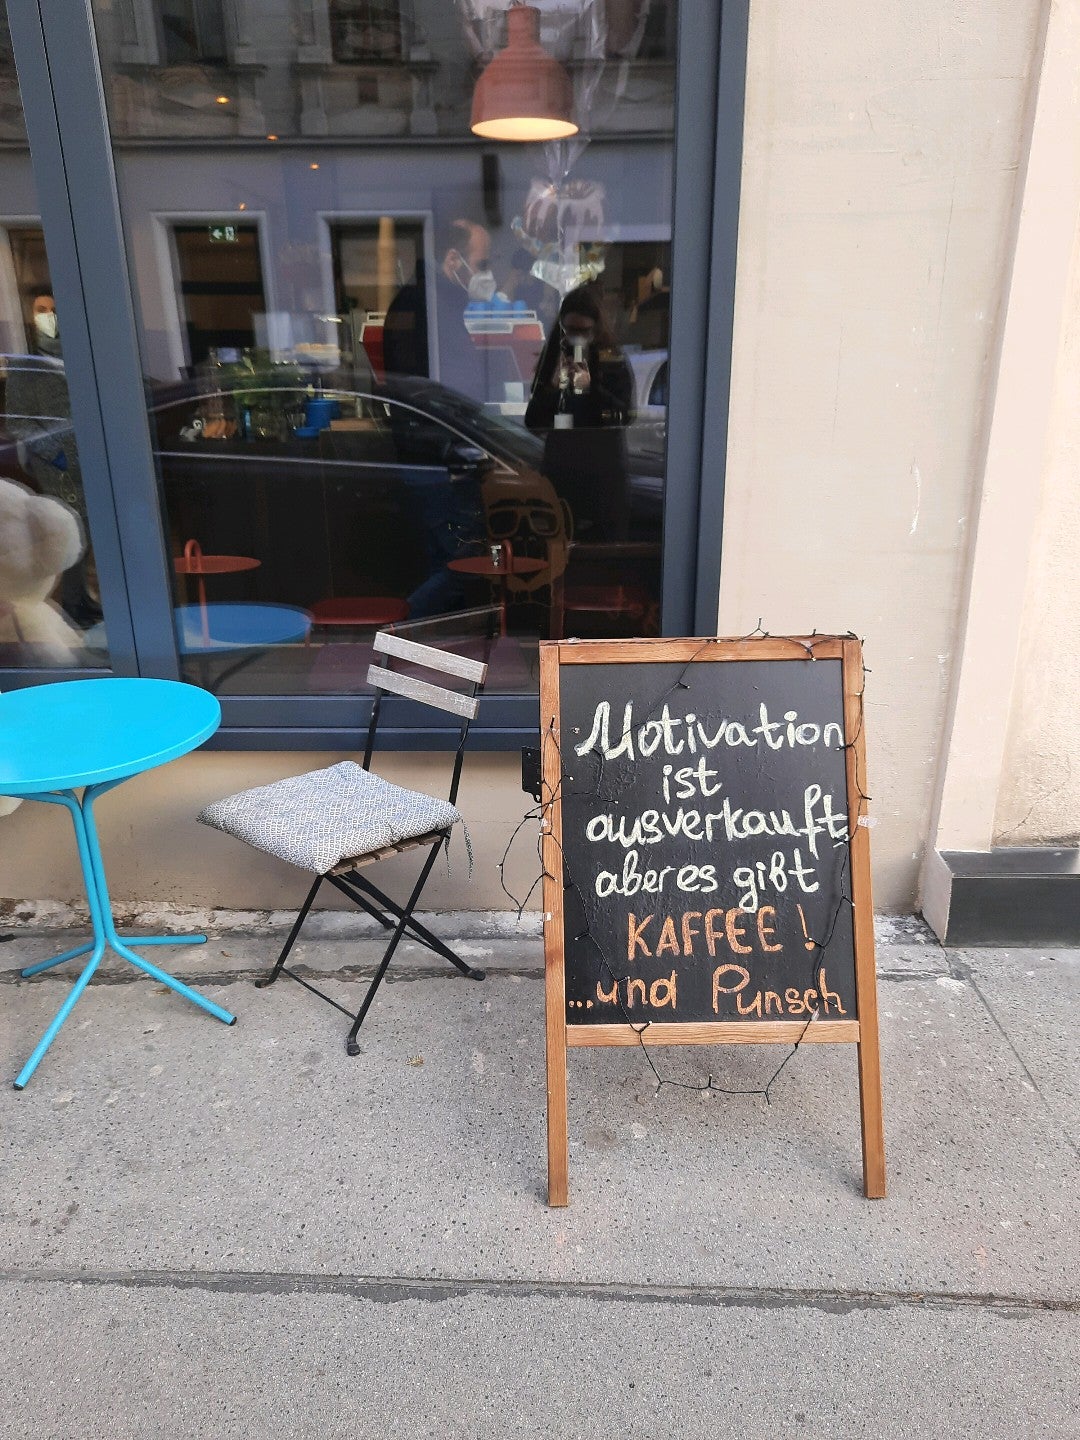 Motivation
ist
ausverkauft
aber es gibt
KAFFEE !
...und Punsch